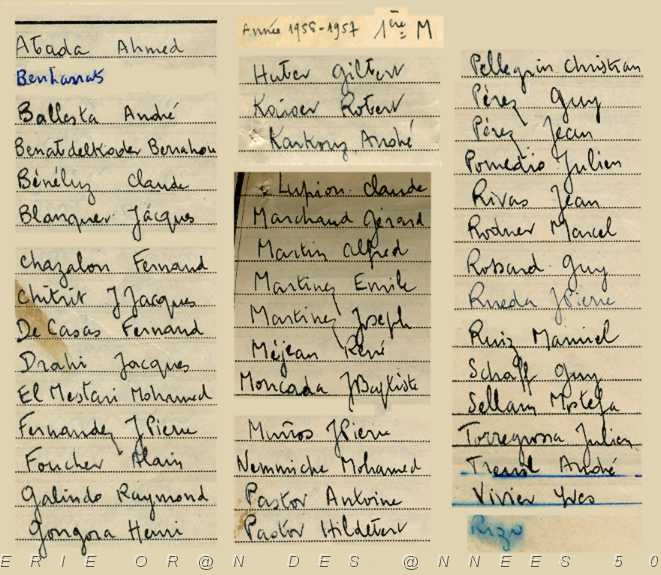 Abada Ahmed
Benhassas
Ballesta André
Benabdelkader Benahou
Bénéluz Claude
Blanquer Jacques
Chazalon Fernand
Chitrit JJacques
De Casas Fernand
Drahi Jacques
El Mestari Mohamed
Fernandez JPierre
Foucher Alain
Galindo Raymond
Gongora Henri
Année 1956-1957 1ère M
Huter Gilbert
Kaiser Robert
Karkouz André
Lupion Claude
Marchand Gérard
Martin Alfred
Martinez Emile
Martinez Joseph
Méjean René
Moncada JBaptiste
Muños JPierre
Nemmiche Mohamed
Pastor Antoine
Pastor Hildebert
Pellegrin Christian
Pérez Guy
Pérez Jean
Pomedio Julien
Rivas Jean
Rodner Marcel
Rossard Guy
Rueda JPierre
Ruiz Manuel
Schaff Guy
Sellam Mostefa
Torregrossa Julien
Treuil André
Vivier Yves
Rizo
ERIE OR@N DES @NNEES 50